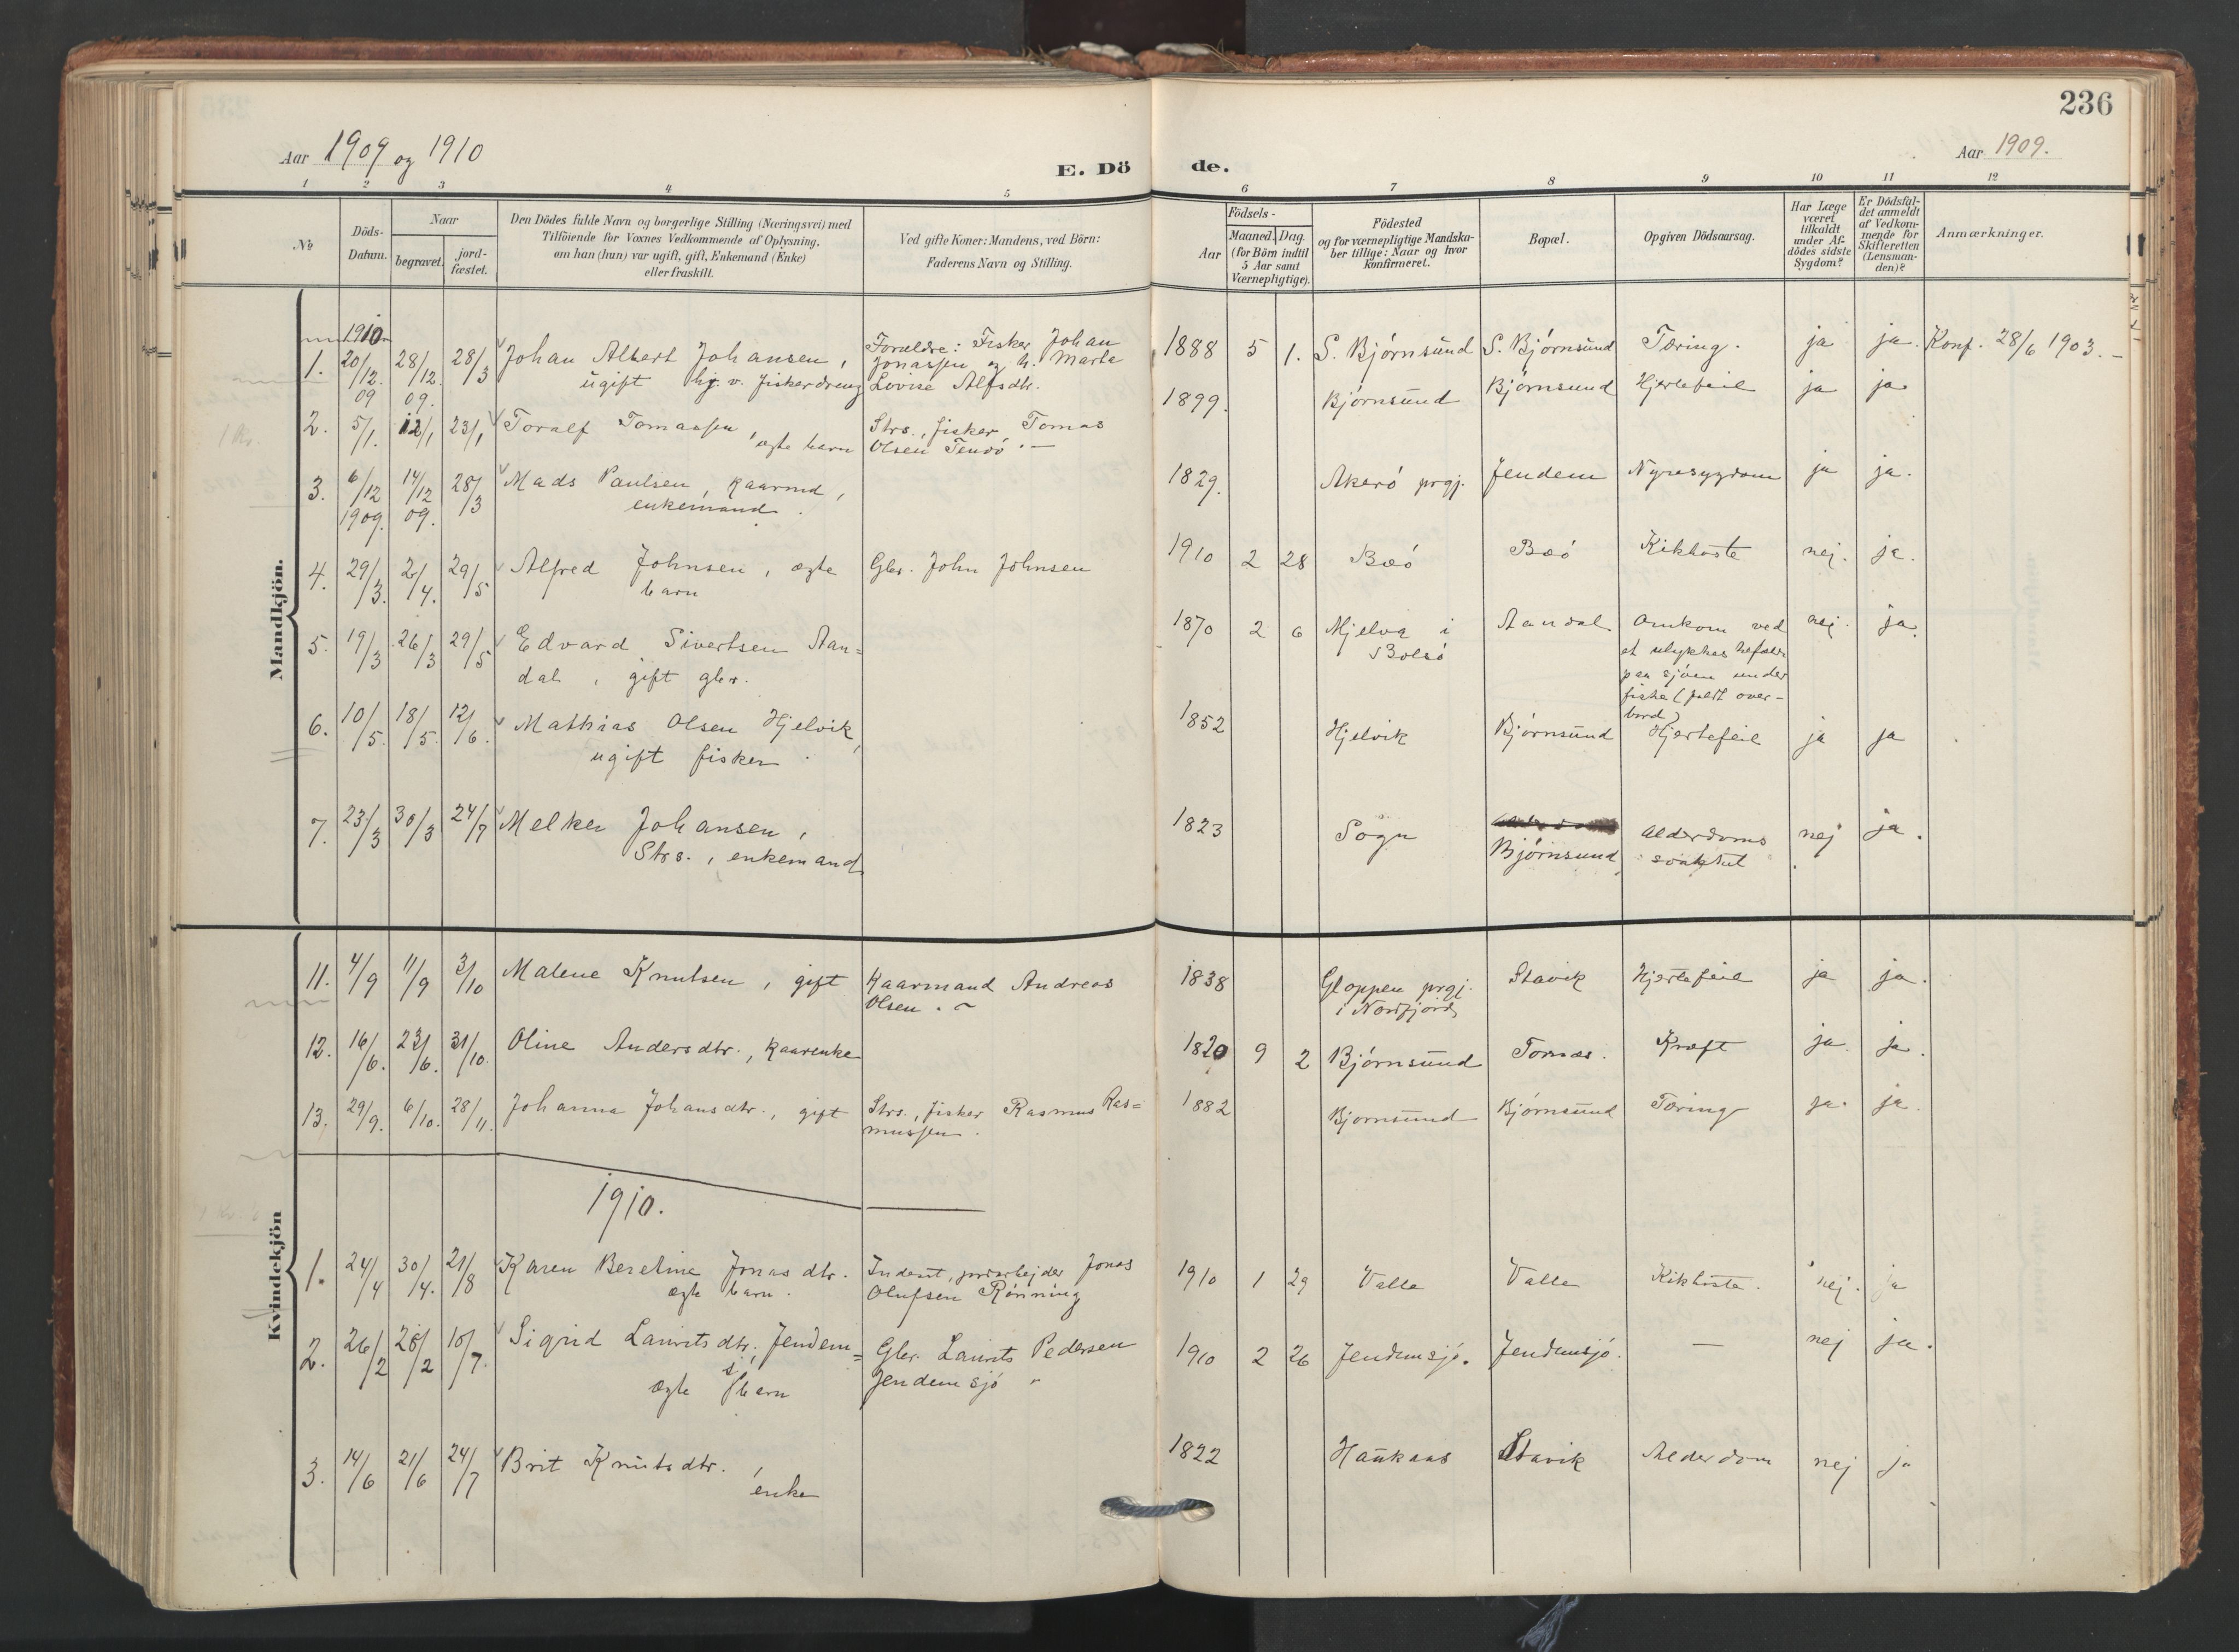 236
Aar 1909 og 1910
E. Dö de.
Aar 1909.
1 2 3 4 5 6 7 8 9 10 11 12
No
Döds-Datum.
Naar
begravet.
jord-fæstet.
Den Dödes fulde Navn og borgerlige Stilling (Næringsvei) med
Tilföiende for Voxnes Vedkommende af Oplysning,
om han (hun) var ugift, gift, Enkemand (Enke)
eller fraskilt.
Ved gifte Koner: Mandens, ved Börn:
Faderens Navn og Stilling.
Födsels-
Aar
Maaned. Dag.
(for Börn indtil
5 Aar samt
Værnepligtige).
Födested
og for værnepligtige Mandska-
ber tillige: Naar og hvor
konfirmeret.
Bopæl.
Opgiven Dödsaarsag.
Har Læge
været
tilkaldt
under Af-
dödes sidste
Sygdom?
Er Dödsfal-
det anmeldt
af Vedkom-
mende for
Skifteretten
(Lensman-
den)?
Anmærkninger.
Mandkjön.
1910
1. 20/12. 09 28/12. 09. 28/3 Johan Albert Johansen,
ugift hj. v. fiskerdreng
Forældre: Fisker Johan
Jonassen og h. Marta
Lovise Alfsdtr.
1888 5 1. S. Björnsund S. Björnsund Tæring. ja ja. Konf. 28/6 1903. -
2. 5/1. 12/1 23/1 Toralf Tomassen,
ægte barn
Strs., fisker Tomas
Olsen Tendö. -
1899. Björnsund Björnsund Hjertefeil ja ja
3. 6/12 1909. 14/12 09. 28/3 Mads Paulsen, kaarmd,
enkemand.
1829. Akerö prgj. Jendem Nyresygdom ja ja.
4. 29/3. 2/4. 29/5 Alfred Johnsen, ægte
barn
Gbr. John Johnsen
1910 2 28 Boö Boö Kikhoste nej. ja.
5. 19/3 26/3 29/5 Edvard Sivertsen Aan=
dal, gift gbr.
1870 2 6 Mjelva i
Bolsö
Aandal Omkom ved
et ulykkes
paa sjöen under
fiske (faldt over-
bord)
nej. ja.
6. 10/5. 18/5. 12/6. Mathias Olsen Hjelvik,
ugift fisker.
1852 Hjelvik Björnsund Hjertefeil ja ja
7. 23/3 30/3 24/7 Melker Johansen,
Strs., enkemand
1823 Sogn Björnsund Alderdoms
svakhet
nej ja.
Kvindekjön
11. 4/9 11/9 3/10 Malene Knutsen, gift
Kaarmand Andreas
Olsen. -
1838 Gloppen prgj.
i Nordfjord
Stavik Hjertefeil ja ja.
12. 16/6. 23/6. 31/10. Oline Andersdtr., kaarenke
1820 9 2 Björnsund Tornes. Kræft ja. ja.
13. 29/9. 6/10. 28/11. Johanna Johansdtr., gift
Strs., fisker Rasmus Ras=
mussen.
1882 Björnsund Björnsund Tæring ja. ja.
1910.
1. 24/4 30/4. 21/8 Karen Bereline Jonasdtr.
ægte barn.
Jonas
Olufsen Rönning
1910 1 29 Valle Valle Kikhoste. nej. ja
2. 26/2 28/2 10/7. Sigrid Lauritsdtr. Jendem=
sjö
ægte barn
Gbr. Laurits Pedersen
Jendemsjö
1910 2 26 Jendemsjö. Jendemsjö. — nej ja.
3. 14/6 21/6 24/7 Brit Knutsdtr.,
enke
1822 Haukaas Stavik Alderdom nej ja